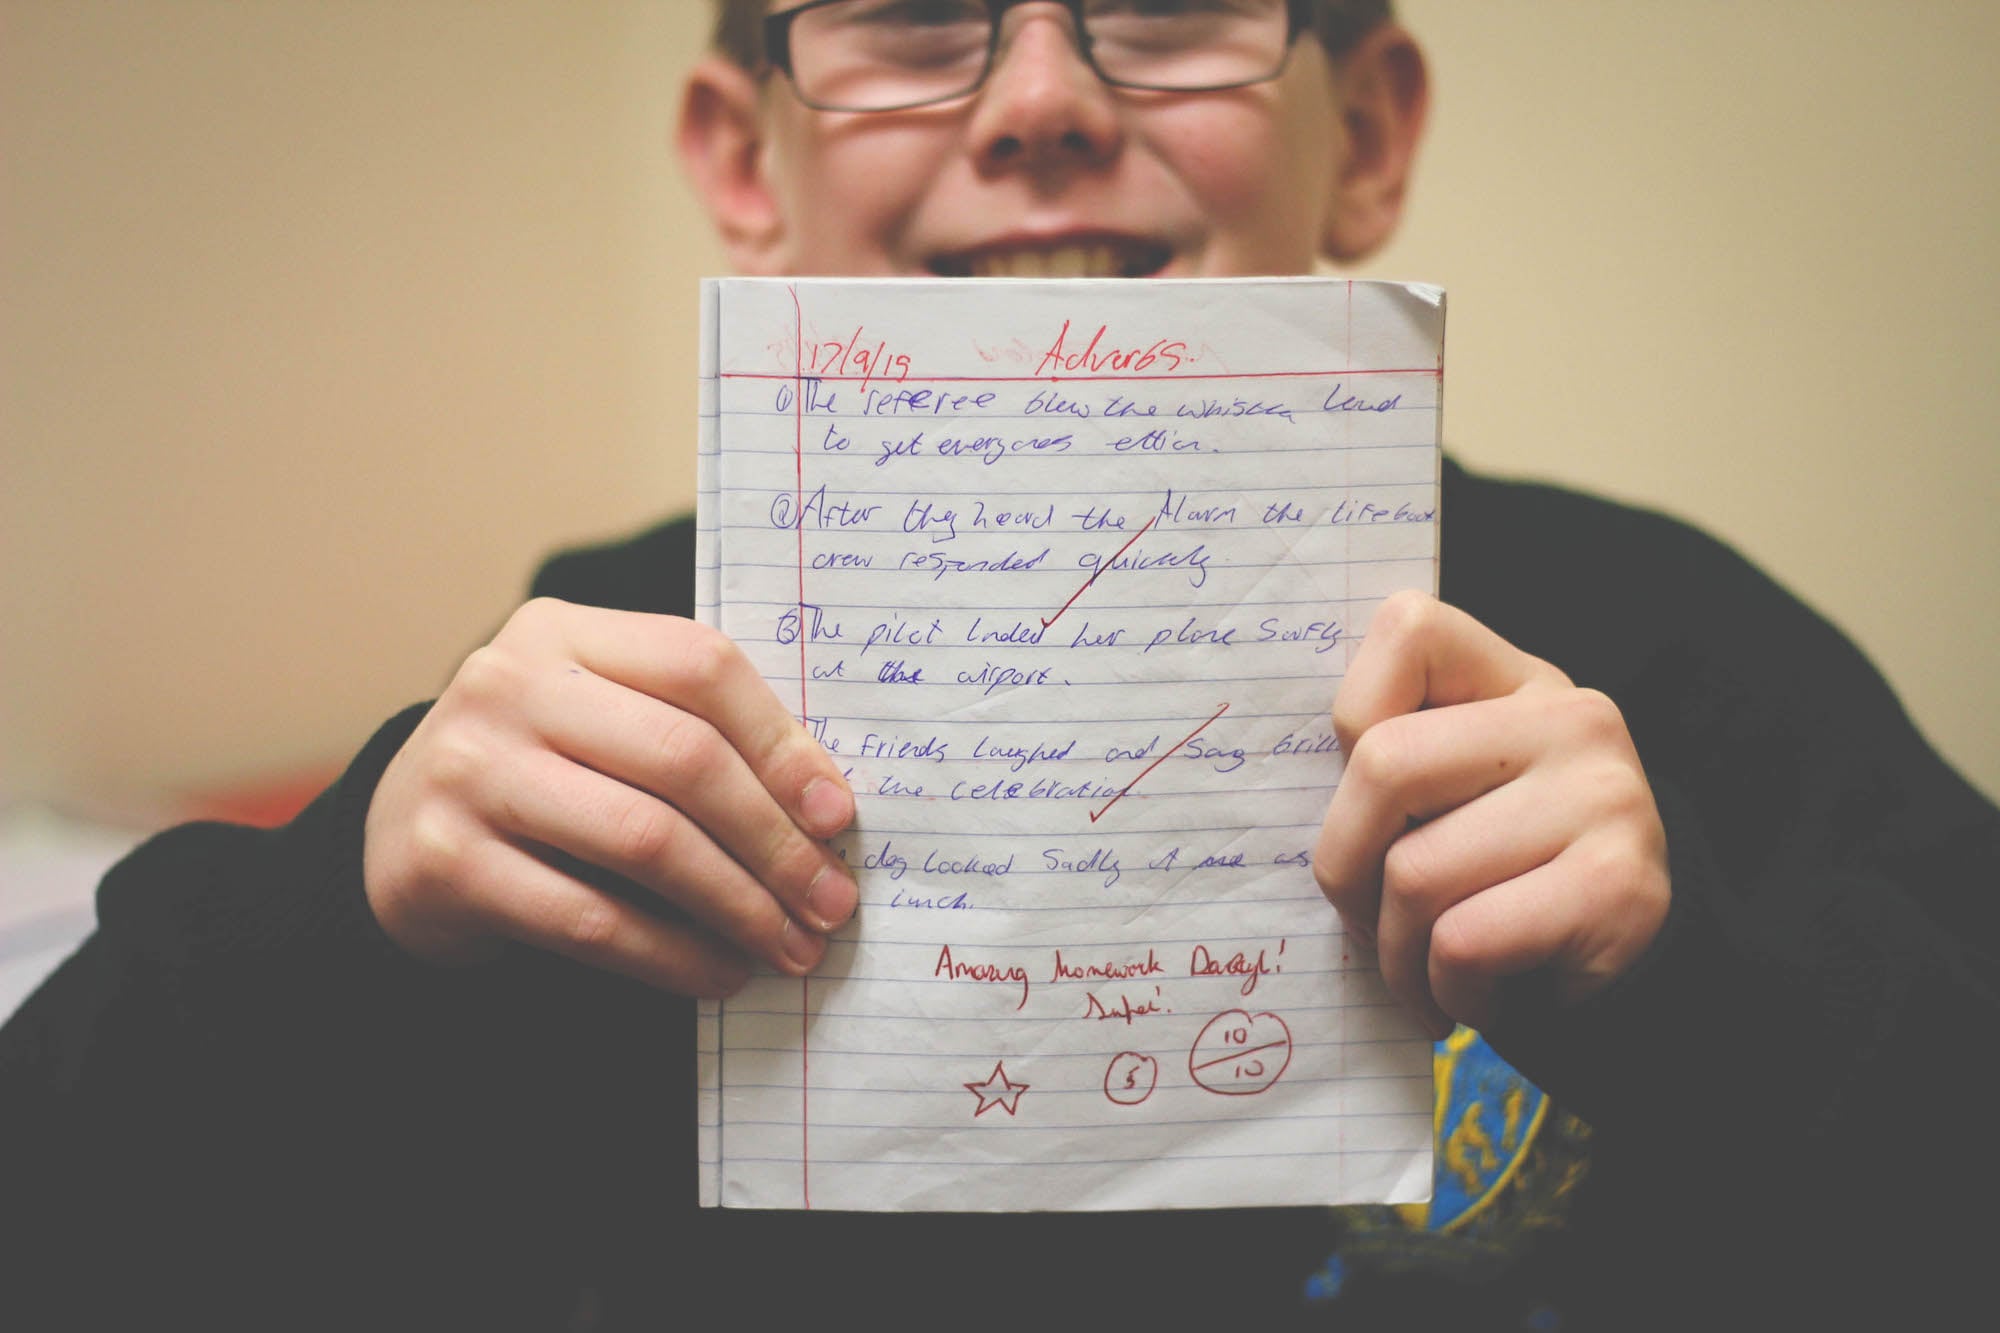 17/9/15 Adverbs.
① The referee blew the whistle loud
to get everyones ettion.
② After they heard the Alarm the lifeboat
crew responded quickly.
③ The pilot landed her plane Saifly
at the airport.
The Friends laughed and Sang brill
the celebration.
dog looked Sadly at me as
lunch.
Amazing homework Darryl!
Super!
5
10
10